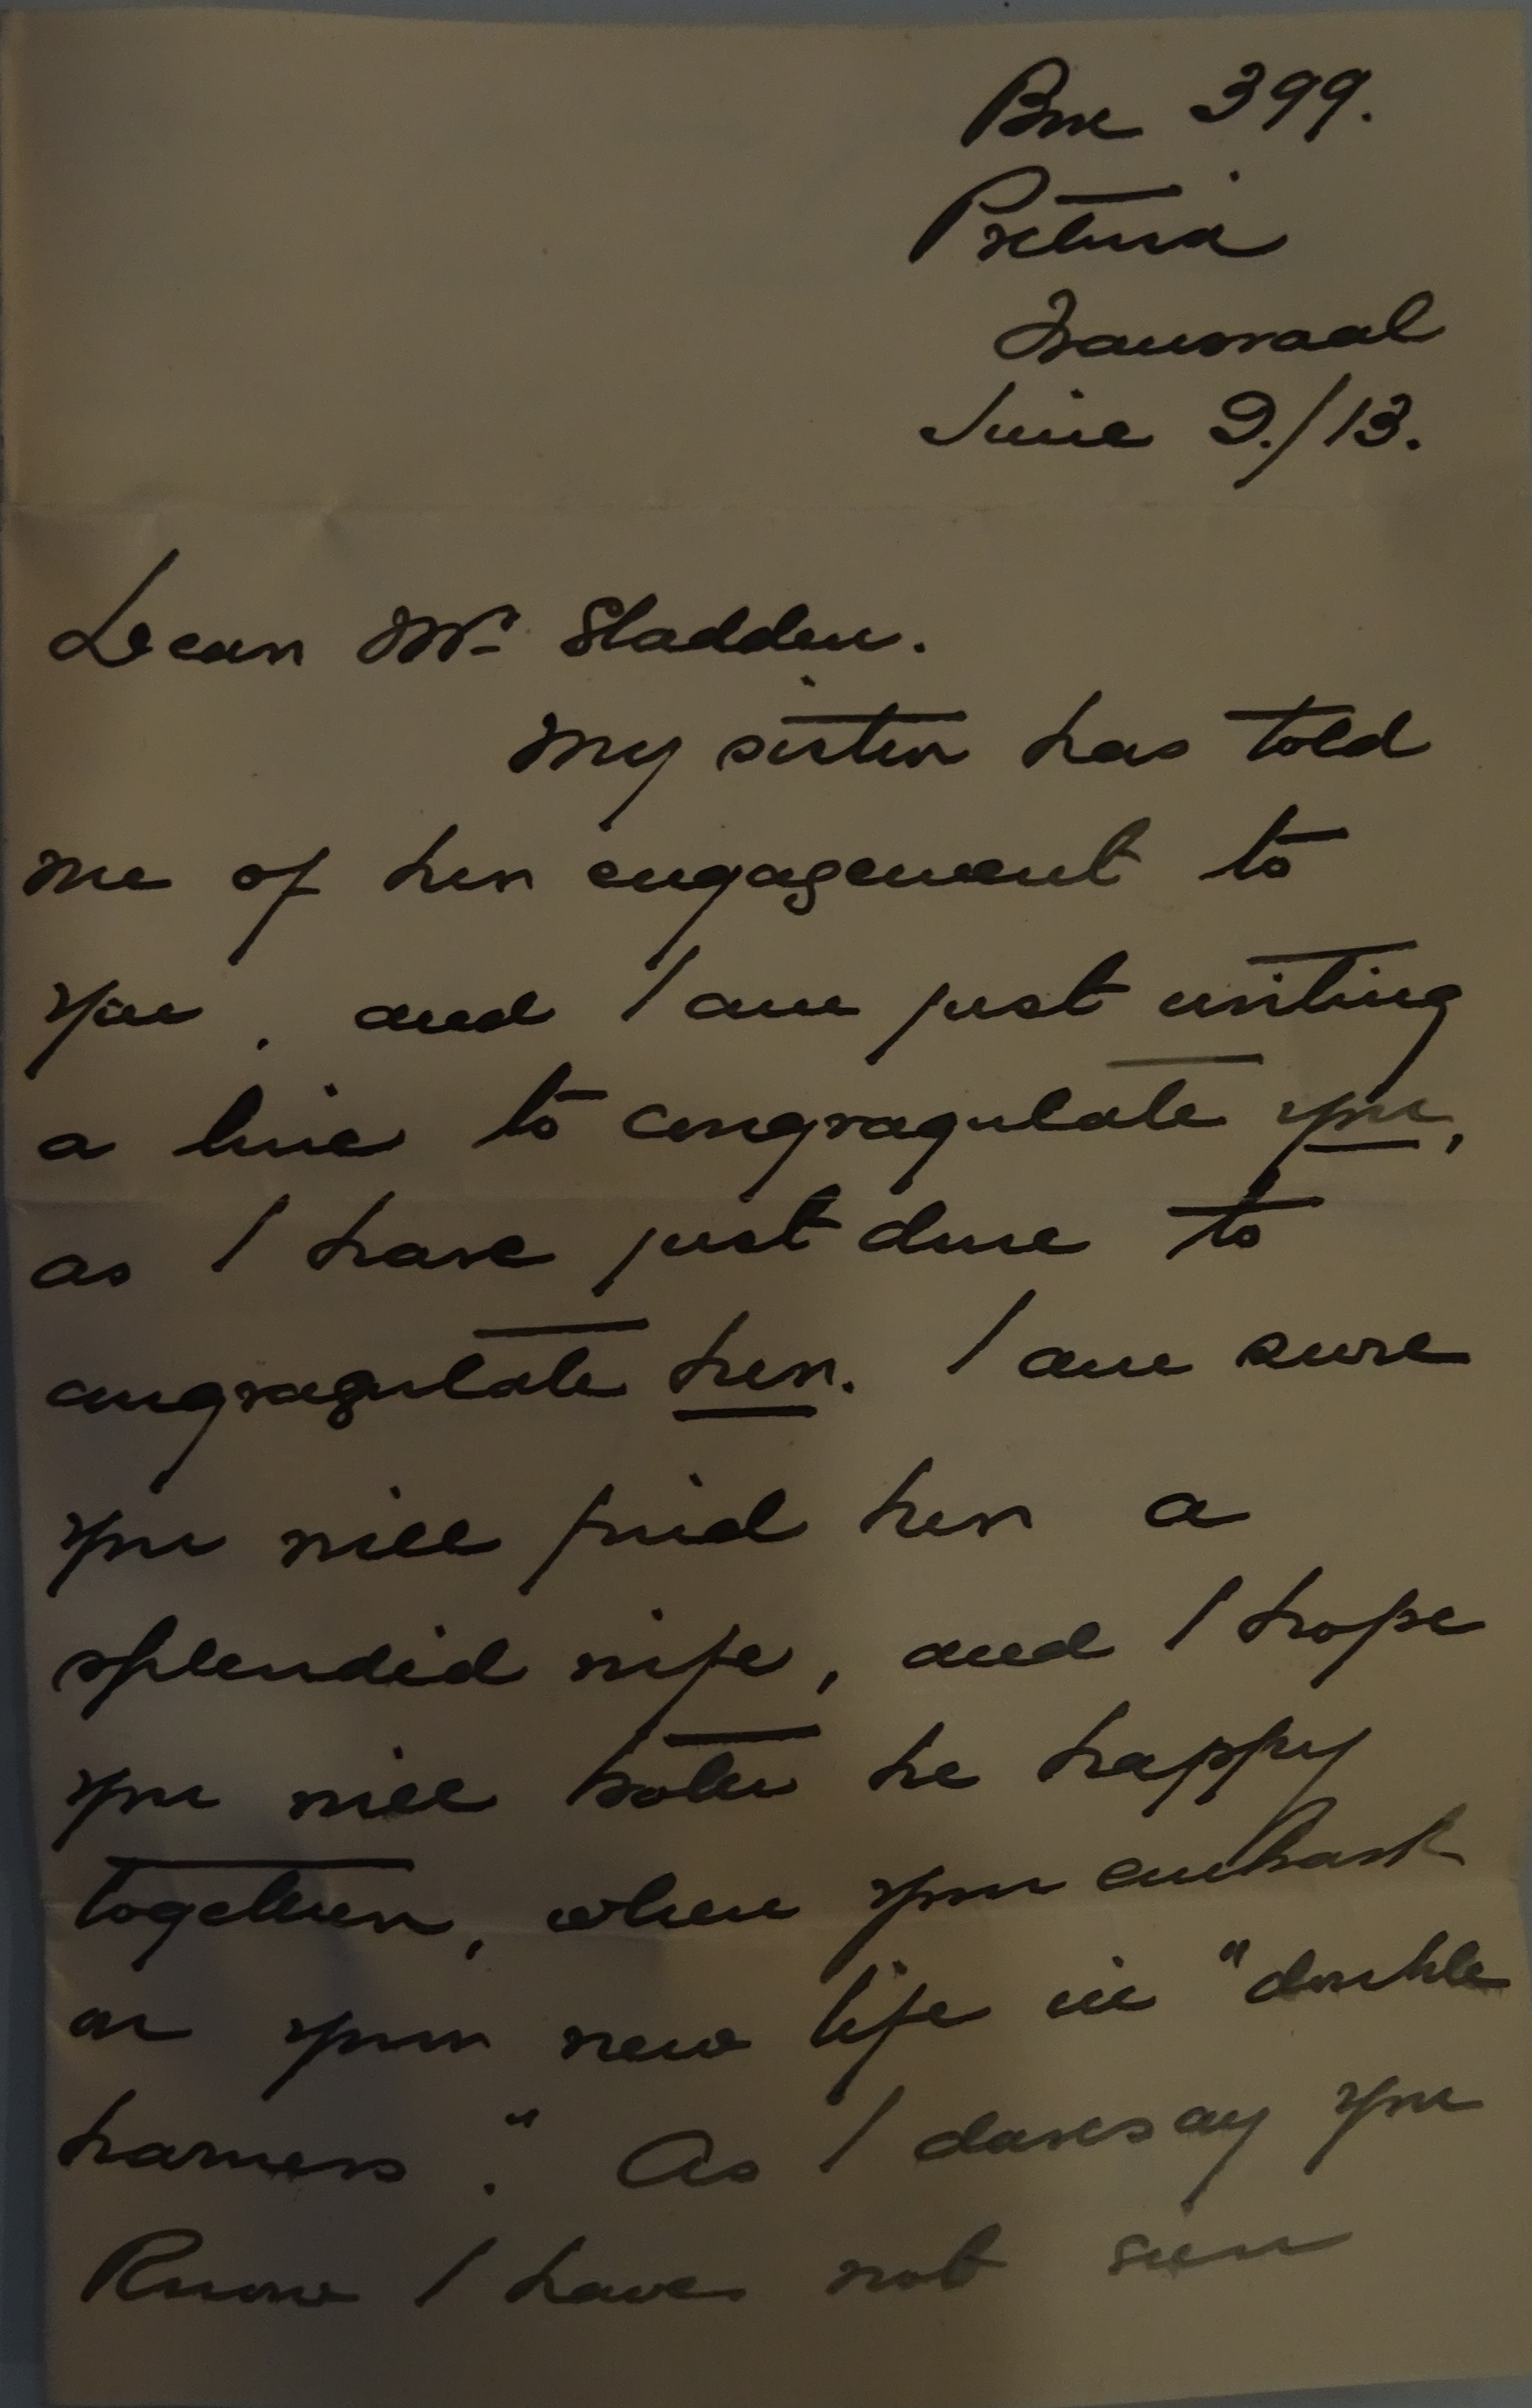 Box 399.
Pretoria
Transvaal
June 9./13.
Dear Mr Sladden.
My sister has told
me of her engagement to
you, and I am just writing
a line to congragulate you,
as I have just done to
congragulate her. I am sure
you will find her a
splendid wife, and I hope
you will both be happy
together, when you embark
on your new life in "double
harness." As I daresay you
know I have not seen